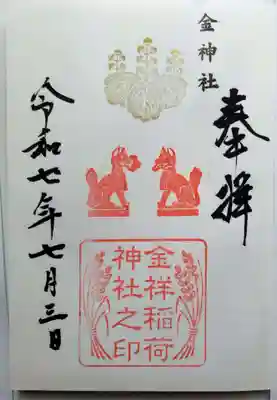 奉拝
金神社
金祥稲荷
神社之印
令和七年七月三日